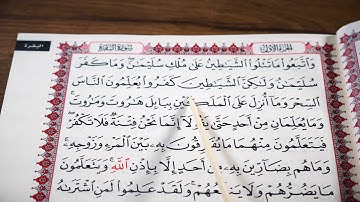 البقرة
سورة البقرة
الجزء الأول
واتبعوا ما تتلوا الشياطين على ملك سليمان وما كفر
سليمان ولكن الشياطين كفروا يعلمون الناس
السحر وما أنزل على الملكين ببابل هاروت وماروت
وما يعلمان من أحد حتى يقولا إنما نحن فتنة فلا تكفر
فيتعلمون منهما ما يفرقون به بين المرء وزوجه
وما هم بضارين به من أحد إلا بإذن الله ويتعلمون
ما يضرهم ولا ينفعهم ولقد علموا لمن اشتراه